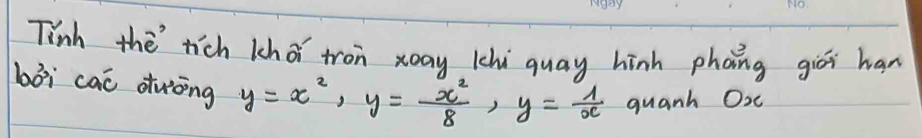 Ngày No.
Tính thể tích khối tròn xoay khi quay hình phẳng giới hạn
bởi các đường y = x², y = x²/8, y = 1/x quanh Ox